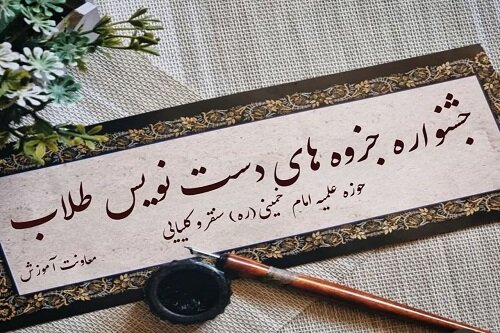 جشنواره جزوه های دست نویس طلاب
حوزه علمیه امام خمینی (ره) سنقر و کلیایی
معاونت آموزش